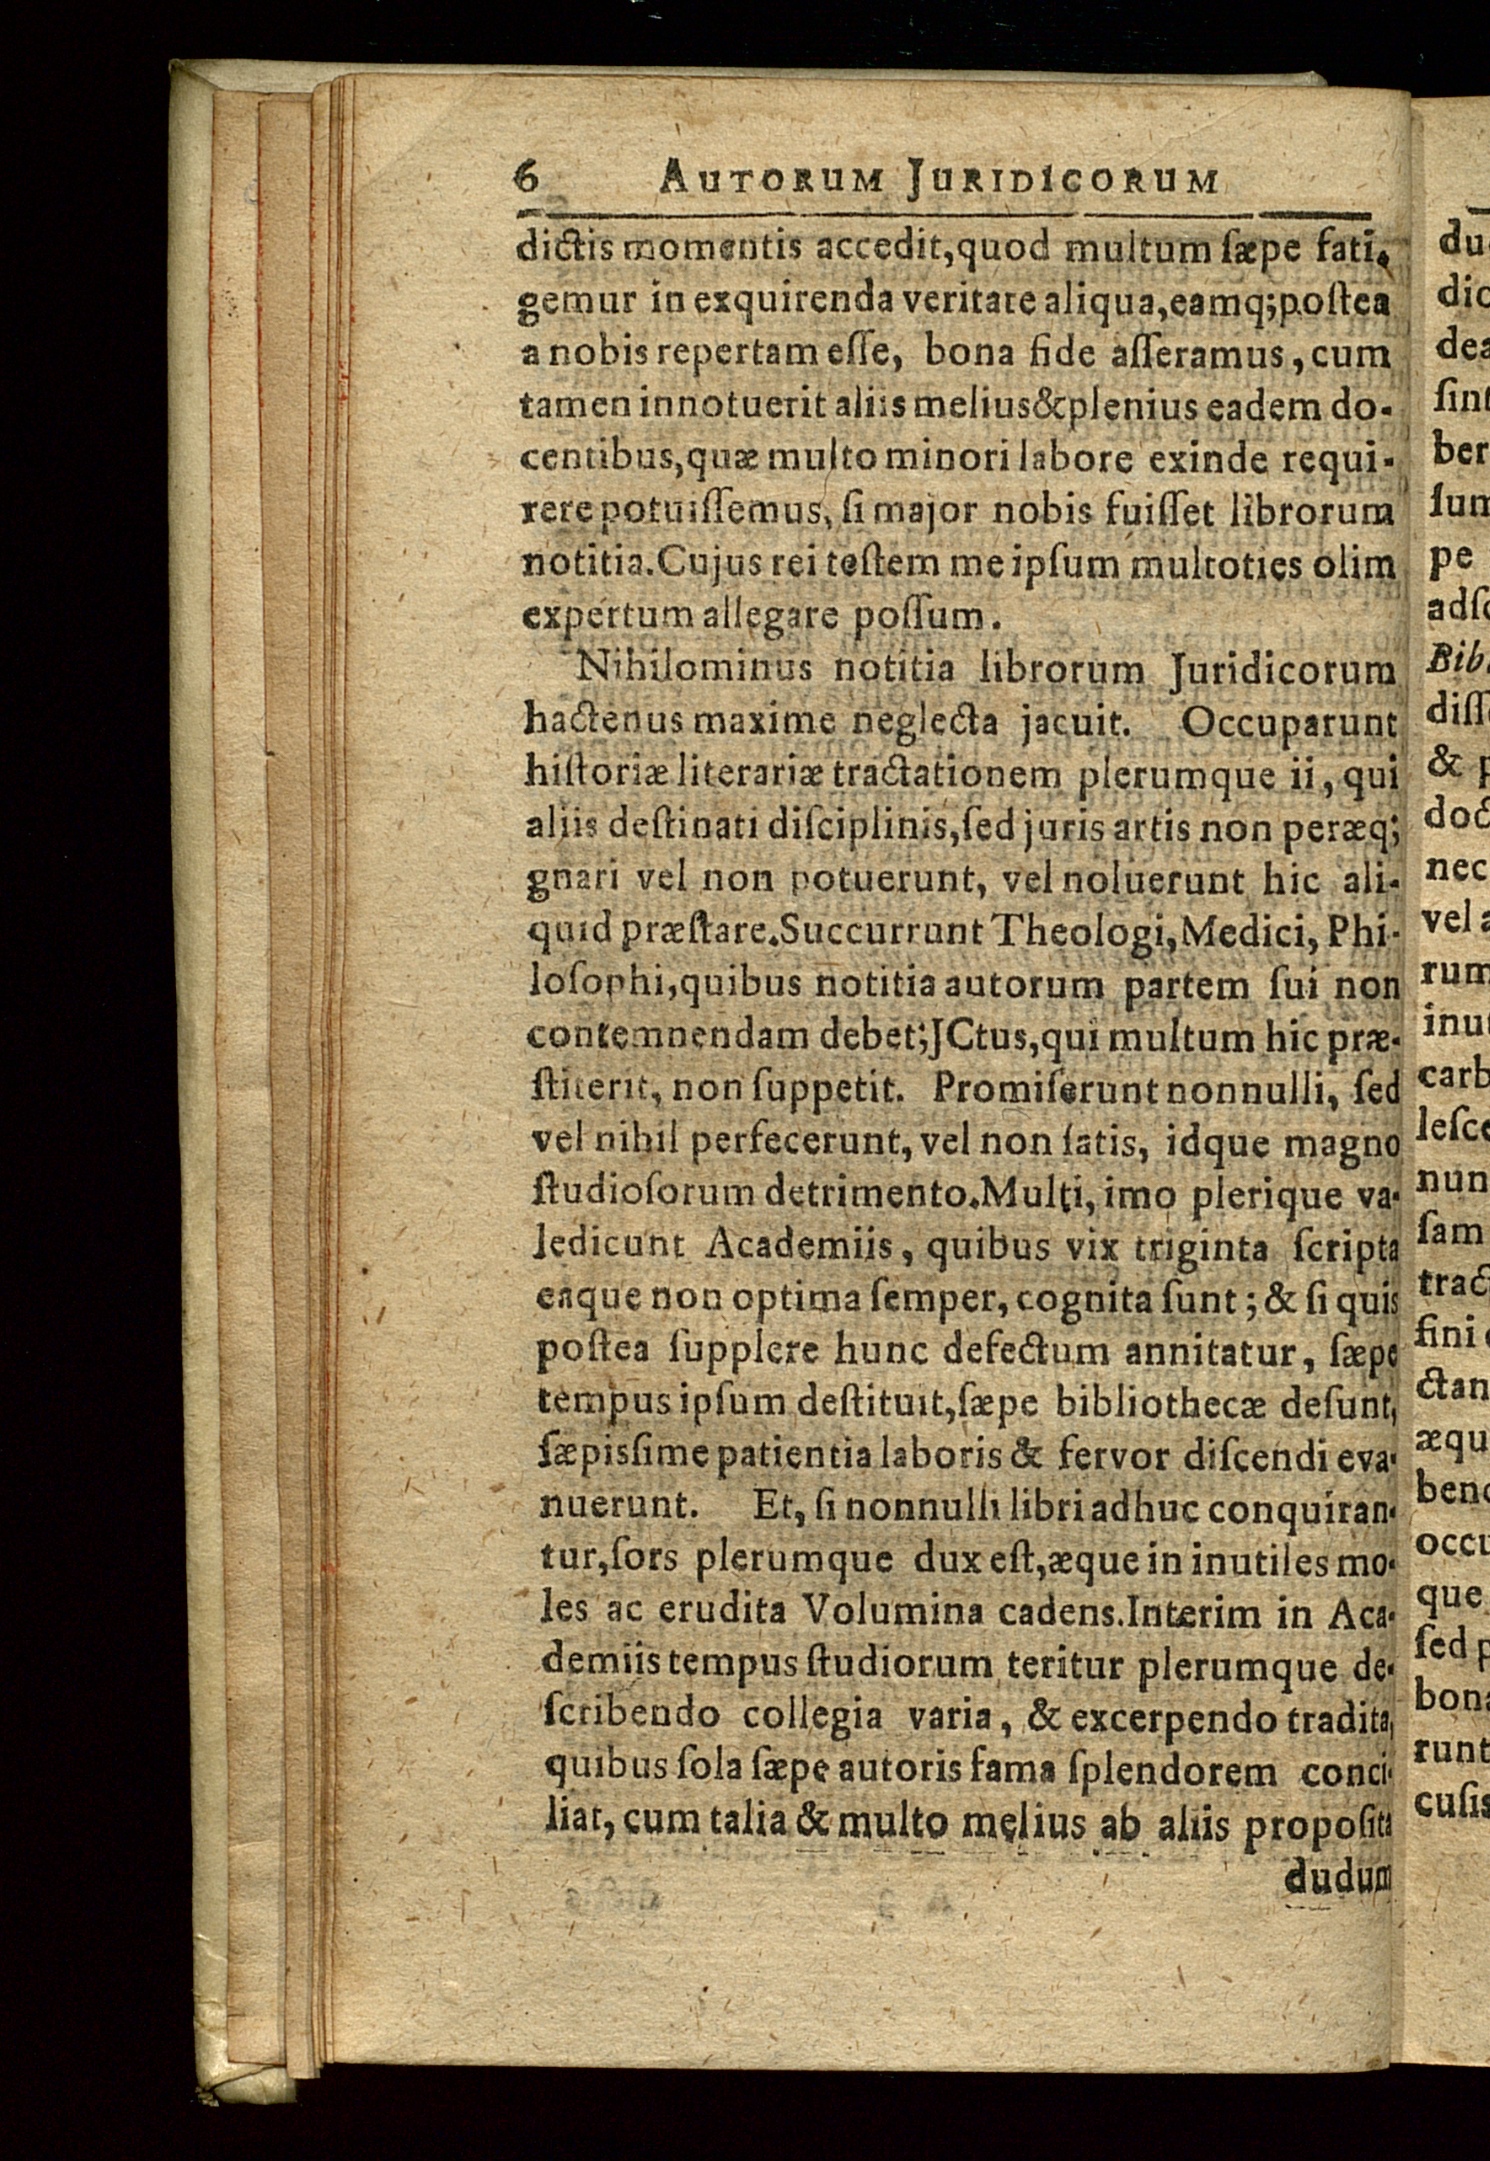 6 AUTORUM JURIDICORUM
dictis momentis accedit,quod multum ſæpe fati-
gemur in exquirenda veritate aliqua,eamq;poſtea
a nobis repertam eſſe, bona fide aſſeramus, cum
tamen innotuerit aliis melius&plenius eadem do-
centibus,quæ multo minori labore exinde requi-
rere potuiſſemus, ſi major nobis fuiſſet librorum
notitia.Cujus rei teſtem me ipſum multoties olim
expertum allegare poſſum.
Nihilominus notitia librorum Juridicorum
hactenus maxime neglecta jacuit. Occuparunt
hiſtoriæ literariæ tractationem plerumque ii, qui
aliis deſtinati diſciplinis,ſed juris artis non peræq;
gnari vel non potuerunt, vel noluerunt hic ali-
quid præſtare.Succurrunt Theologi, Medici, Phi-
loſophi,quibus notitia autorum partem ſui non
contemnendam debet;JCtus,qui multum hic præ-
ſtiterit, non ſuppetit. Promiſerunt nonnulli, ſed
vel nihil perfecerunt, vel non ſatis, idque magno
ſtudioſorum detrimento.Multi, imo plerique va-
ledicunt Academiis, quibus vix triginta ſcripta
eaque non optima ſemper, cognita ſunt; & ſi quis
poſtea ſupplere hunc defectum annitatur, ſæpe
tempus ipſum deſtituit,ſæpe bibliothecæ deſunt,
ſæpisſime patientia laboris & fervor diſcendi eva-
nuerunt. Et, ſi nonnulli libri adhuc conquiran-
tur,ſors plerumque dux eſt,æque in inutiles mo-
les ac erudita Volumina cadens.Interim in Aca-
demiis tempus ſtudiorum teritur plerumque de-
ſcribendo collegia varia, & excerpendo tradita,
quibus ſola ſæpe autoris fama ſplendorem conci-
liat, cum talia & multo melius ab aliis propoſita
dudum